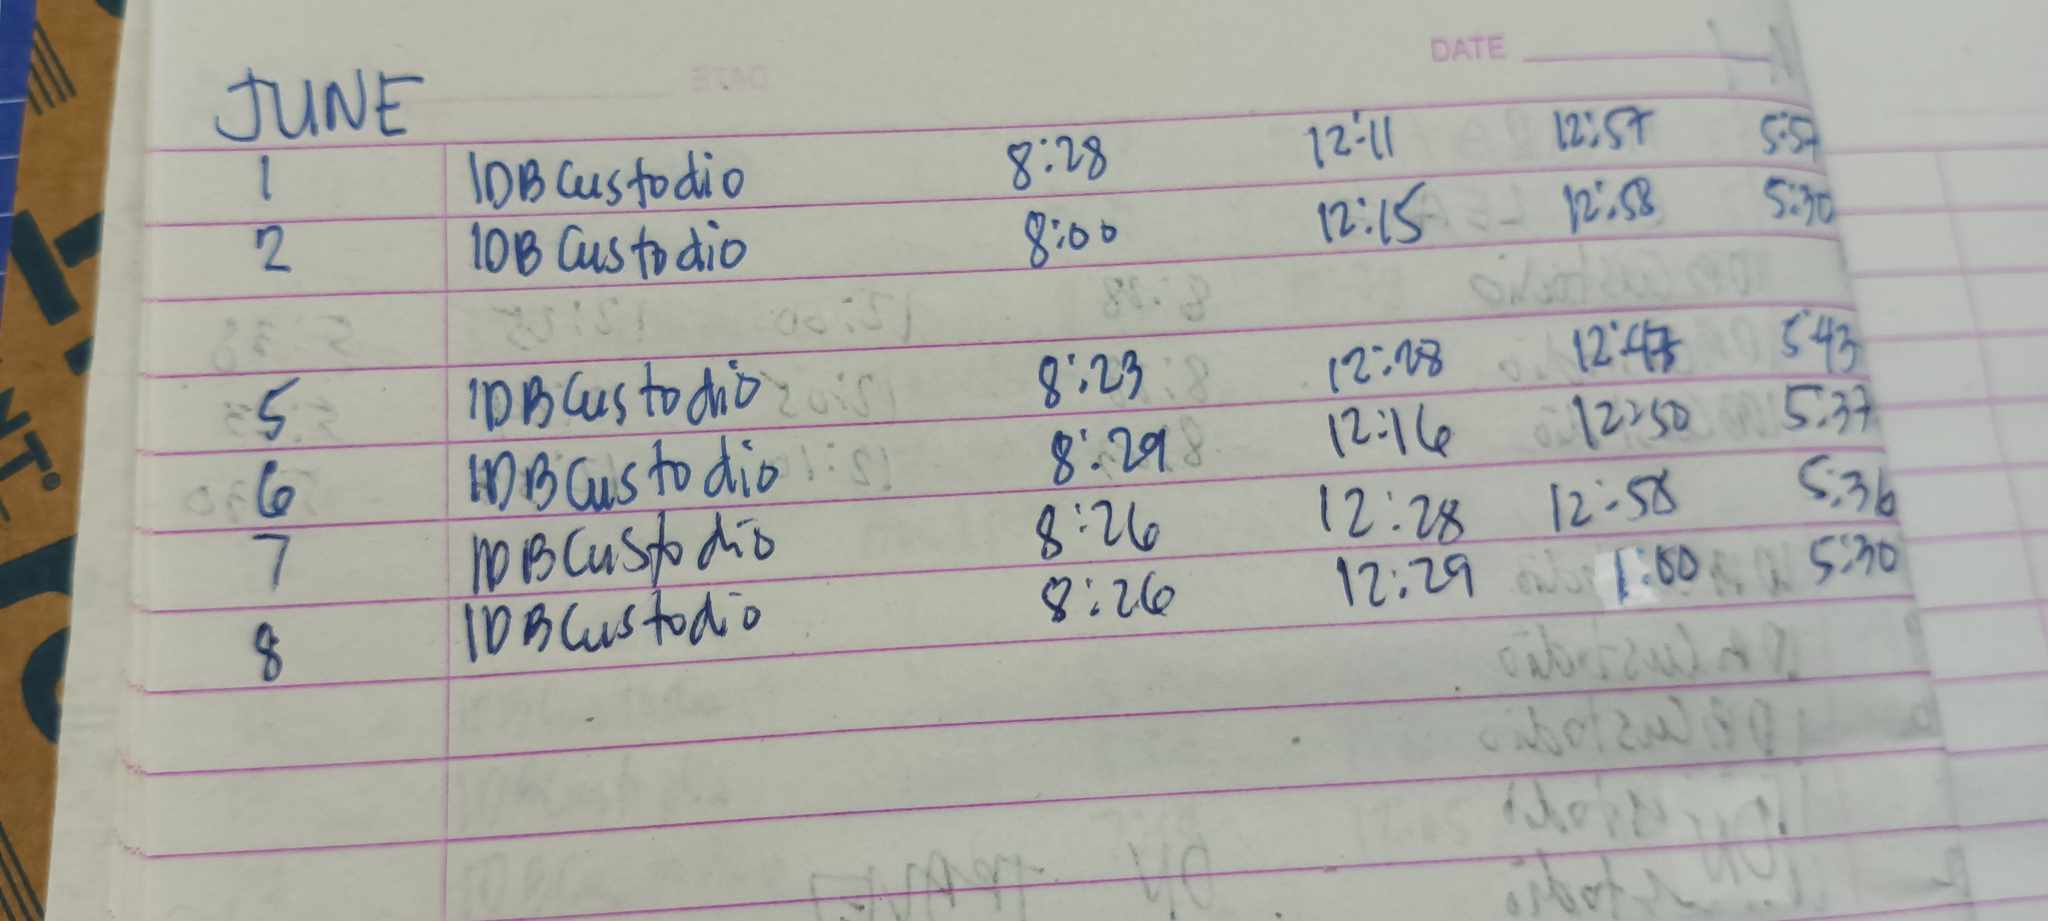 DATE
JUNE
1 IDBCustodio 8:28 12:11 12:57 5:57
2 IDB Custodio 8:00 12:15 12:58 5:30
5 IDBCustodio 8:23 12:28 5:43
6 IDBCustodio 8:29 12:16 12:50 5:37
7 IDBCustodio 8:26 12:28 12:58 5:36
8 IDBCustodio 8:26 12:29 1:00 5:30